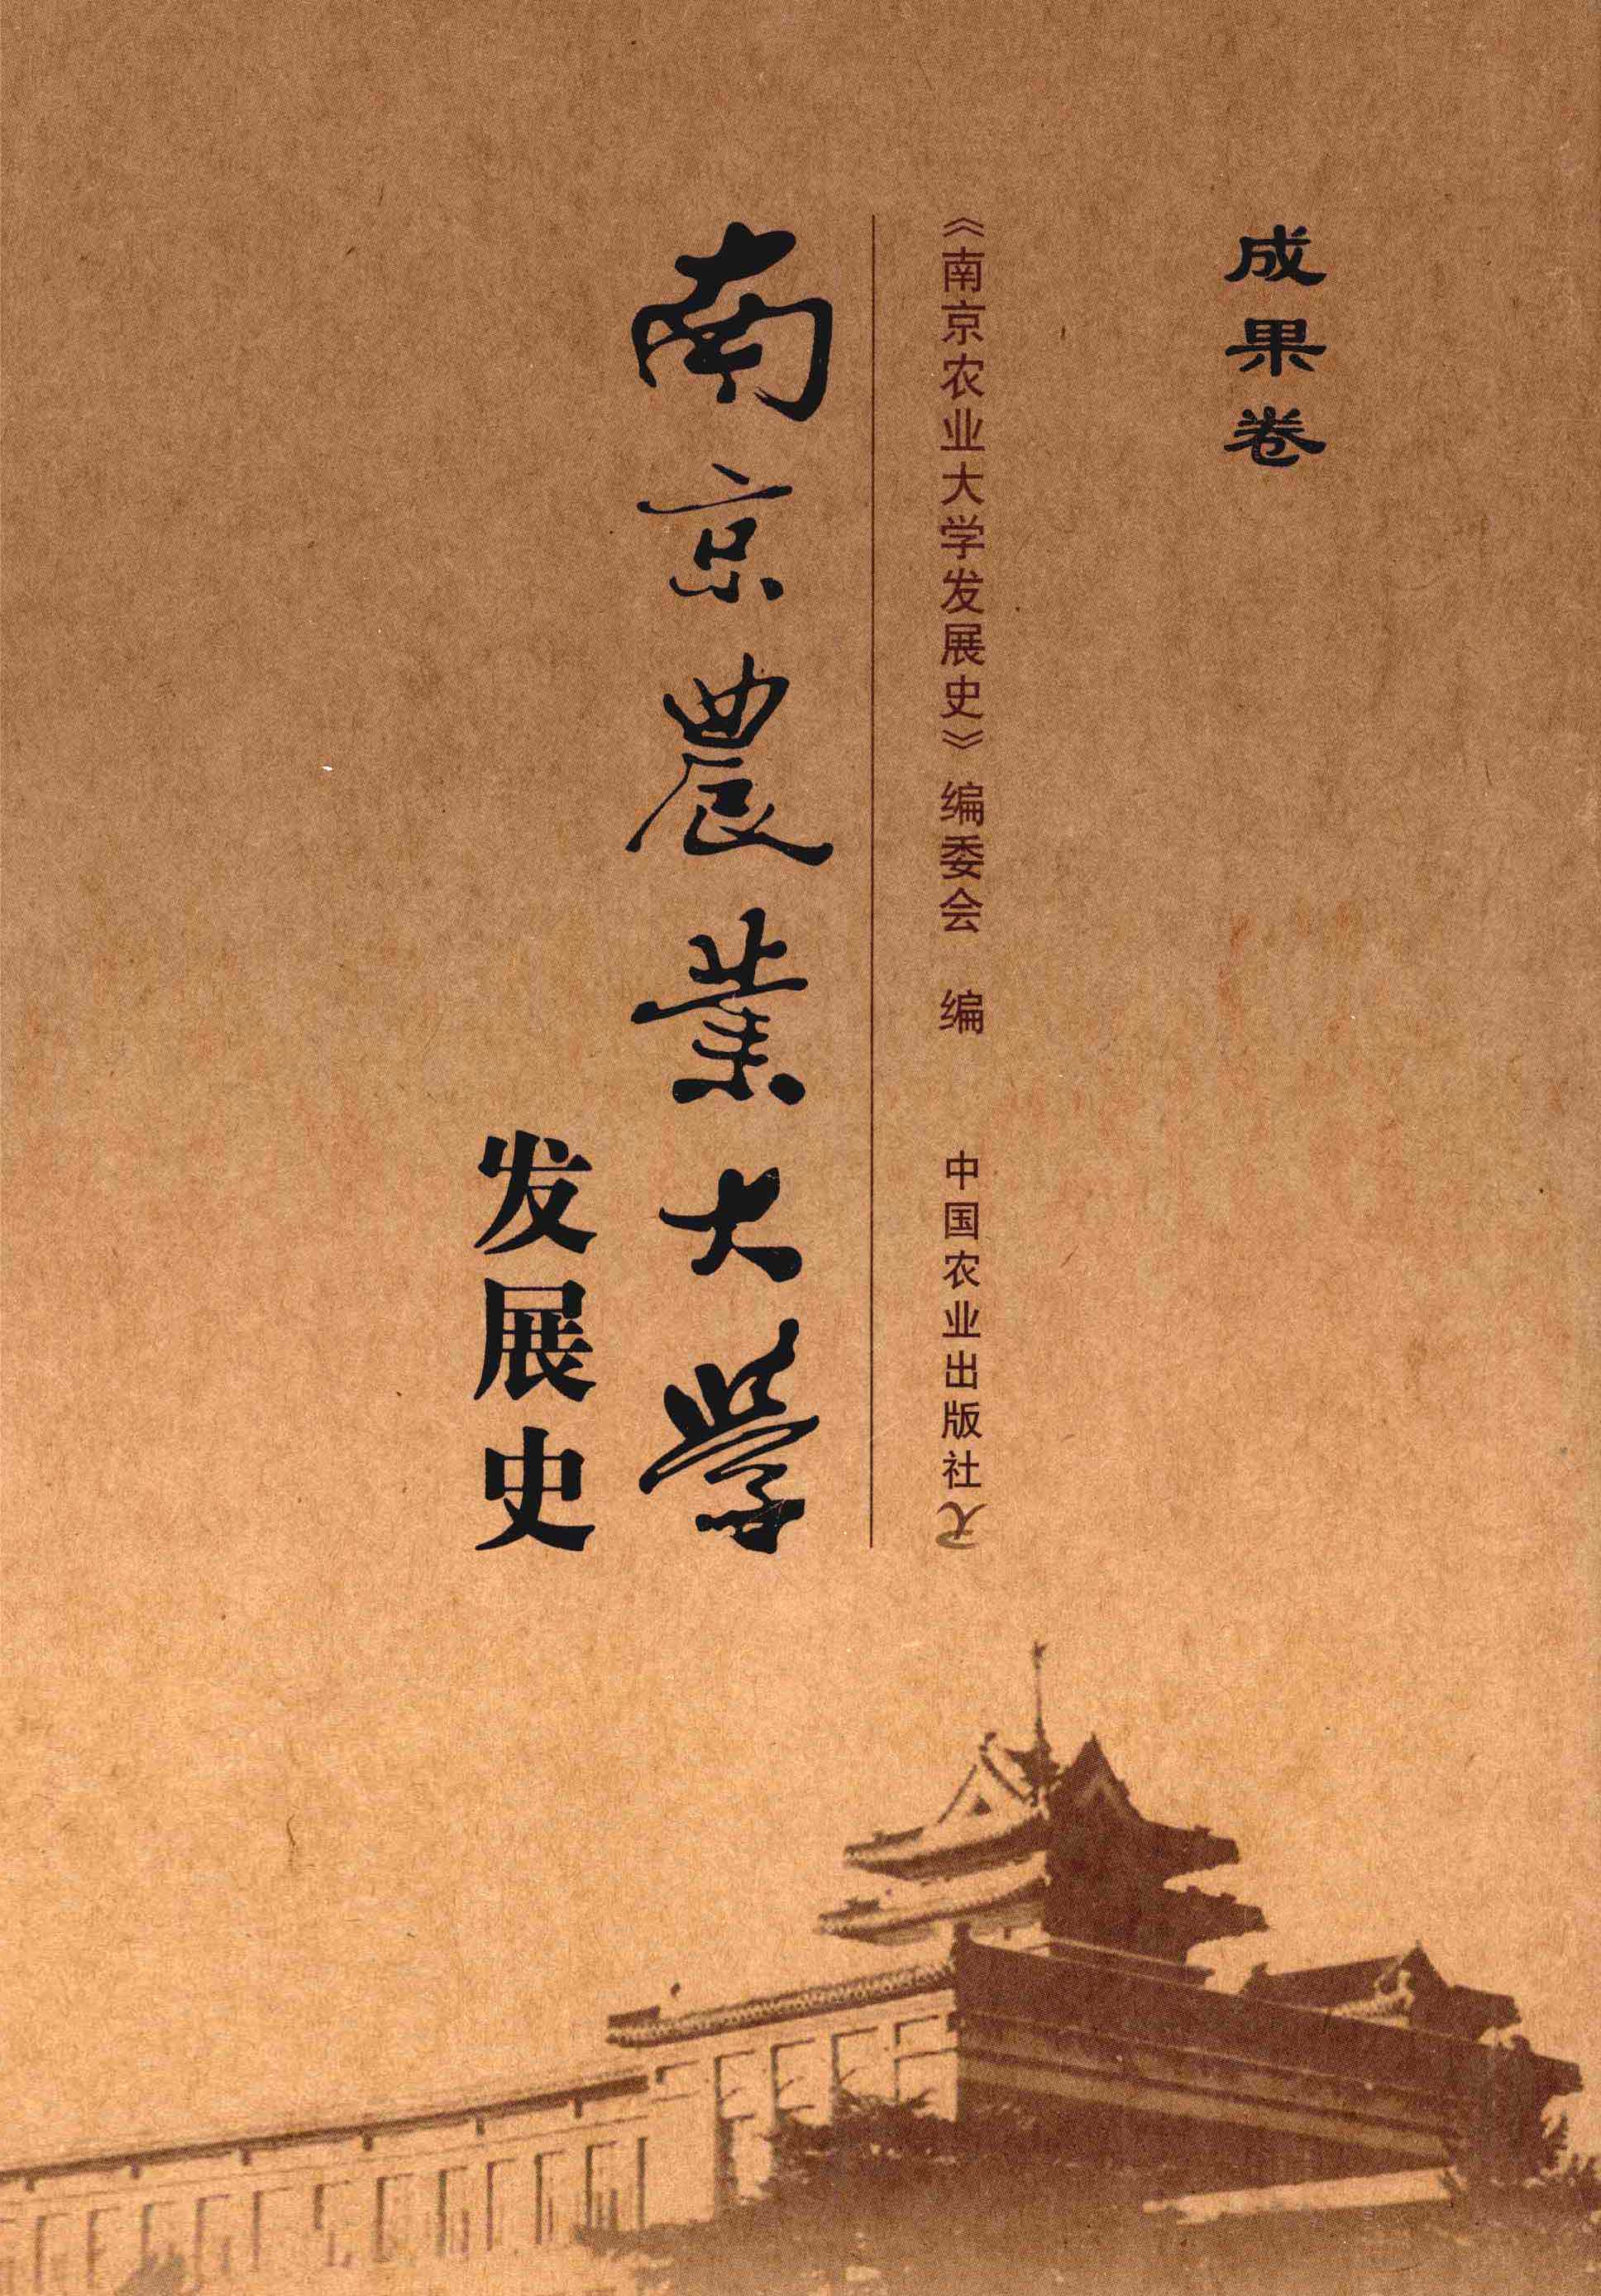 成果卷
《南京农业大学发展史》编委会 编 中国农业出版社
南京農業大學
发展史